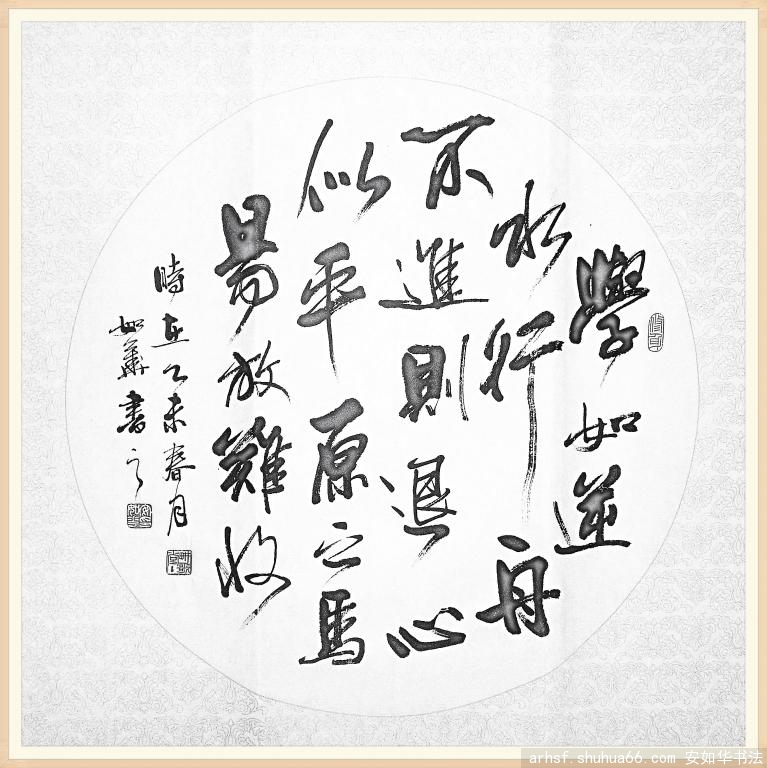 學如逆
水行舟
不進則退心
似平原之馬
易放難收
時在乙未春月
如華書之
arhsf.shuhua66.com 安如华书法